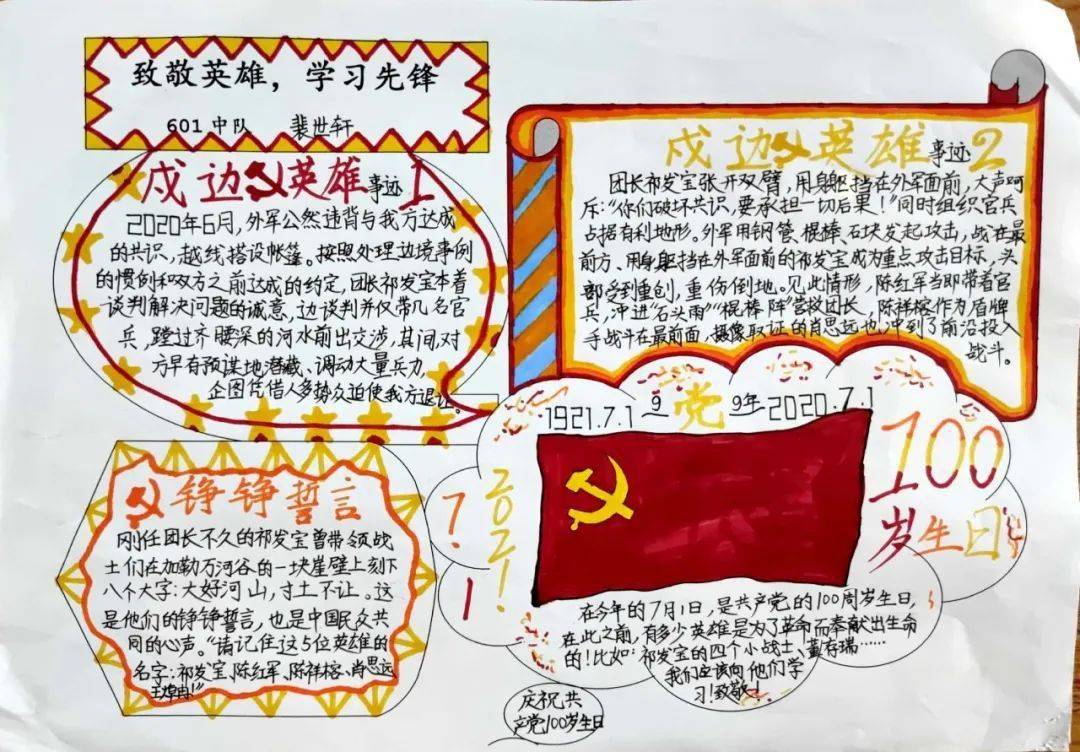 致敬英雄，学习先锋
601中队 裴世轩
戍边英雄事迹1
2020年6月，外军公然违背与我方达成
的共识，越线搭设帐篷。按照处理边境事例
的惯例和双方之前达成的约定，团长祁发宝本着
谈判解决问题的诚意，边谈判并仅带几名官
兵，蹚过齐腰深的河水前出交涉，其间，对
方早有预谋地潜藏、调动大量兵力，
企图凭借人多势众迫使我方退让。
戍边英雄事迹2
团长祁发宝张开双臂，用身躯挡在外军面前，大声呵
斥：“你们破坏共识，要承担一切后果！”同时组织官兵
占据有利地形。外军用钢管、棍棒、石块发起攻击，战在最
前方、用身躯挡在外军面前的祁发宝成为重点攻击目标，头
部受到重创，重伤倒地。见此情形，陈红军当即带着官
兵，冲进“石头雨”“棍棒阵”营救团长，陈祥榕作为盾牌
手战斗在最前面，摄像取证的肖思远也冲到了前沿投入
战斗。
铮铮誓言
刚任团长不久的祁发宝曾带领战
士们在加勒万河谷的一块崖壁上刻下
八个大字：大好河山，寸土不让。这
是他们的铮铮誓言，也是中国民众共
同的心声。“请记住这5位英雄的
名字：祁发宝、陈红军、陈祥榕、肖思远、
王焯冉！”
1921.7.1 9 党 9年 2020.7.1
2021!
7.1
100
岁生日
在今年的7月1日，是共产党的100周岁生日，
在此之前，有多少英雄是为了革命而奉献出生命
的！比如：祁发宝的四个小战士、董存瑞……
我们应该向他们学
习！致敬！
庆祝共
产党100岁生日